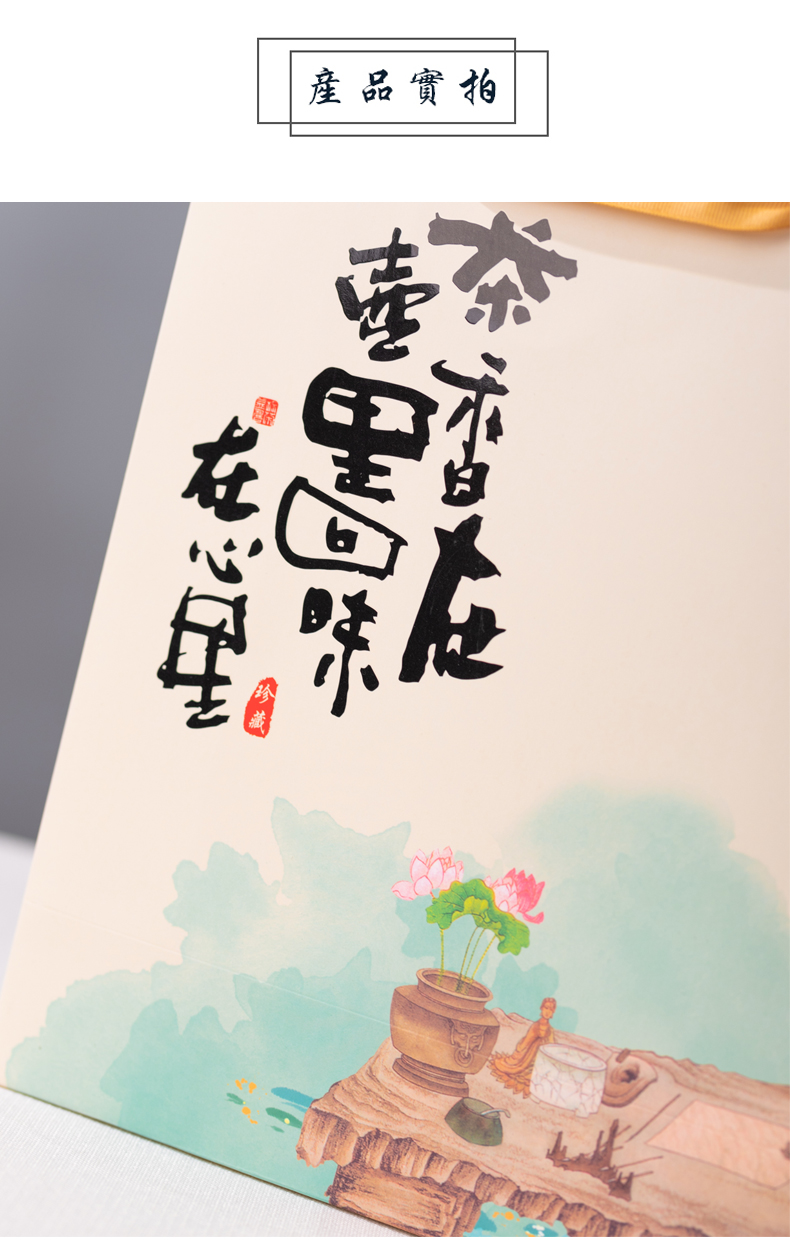 産品實拍
茶香在
壺里回味
在心里
珍藏